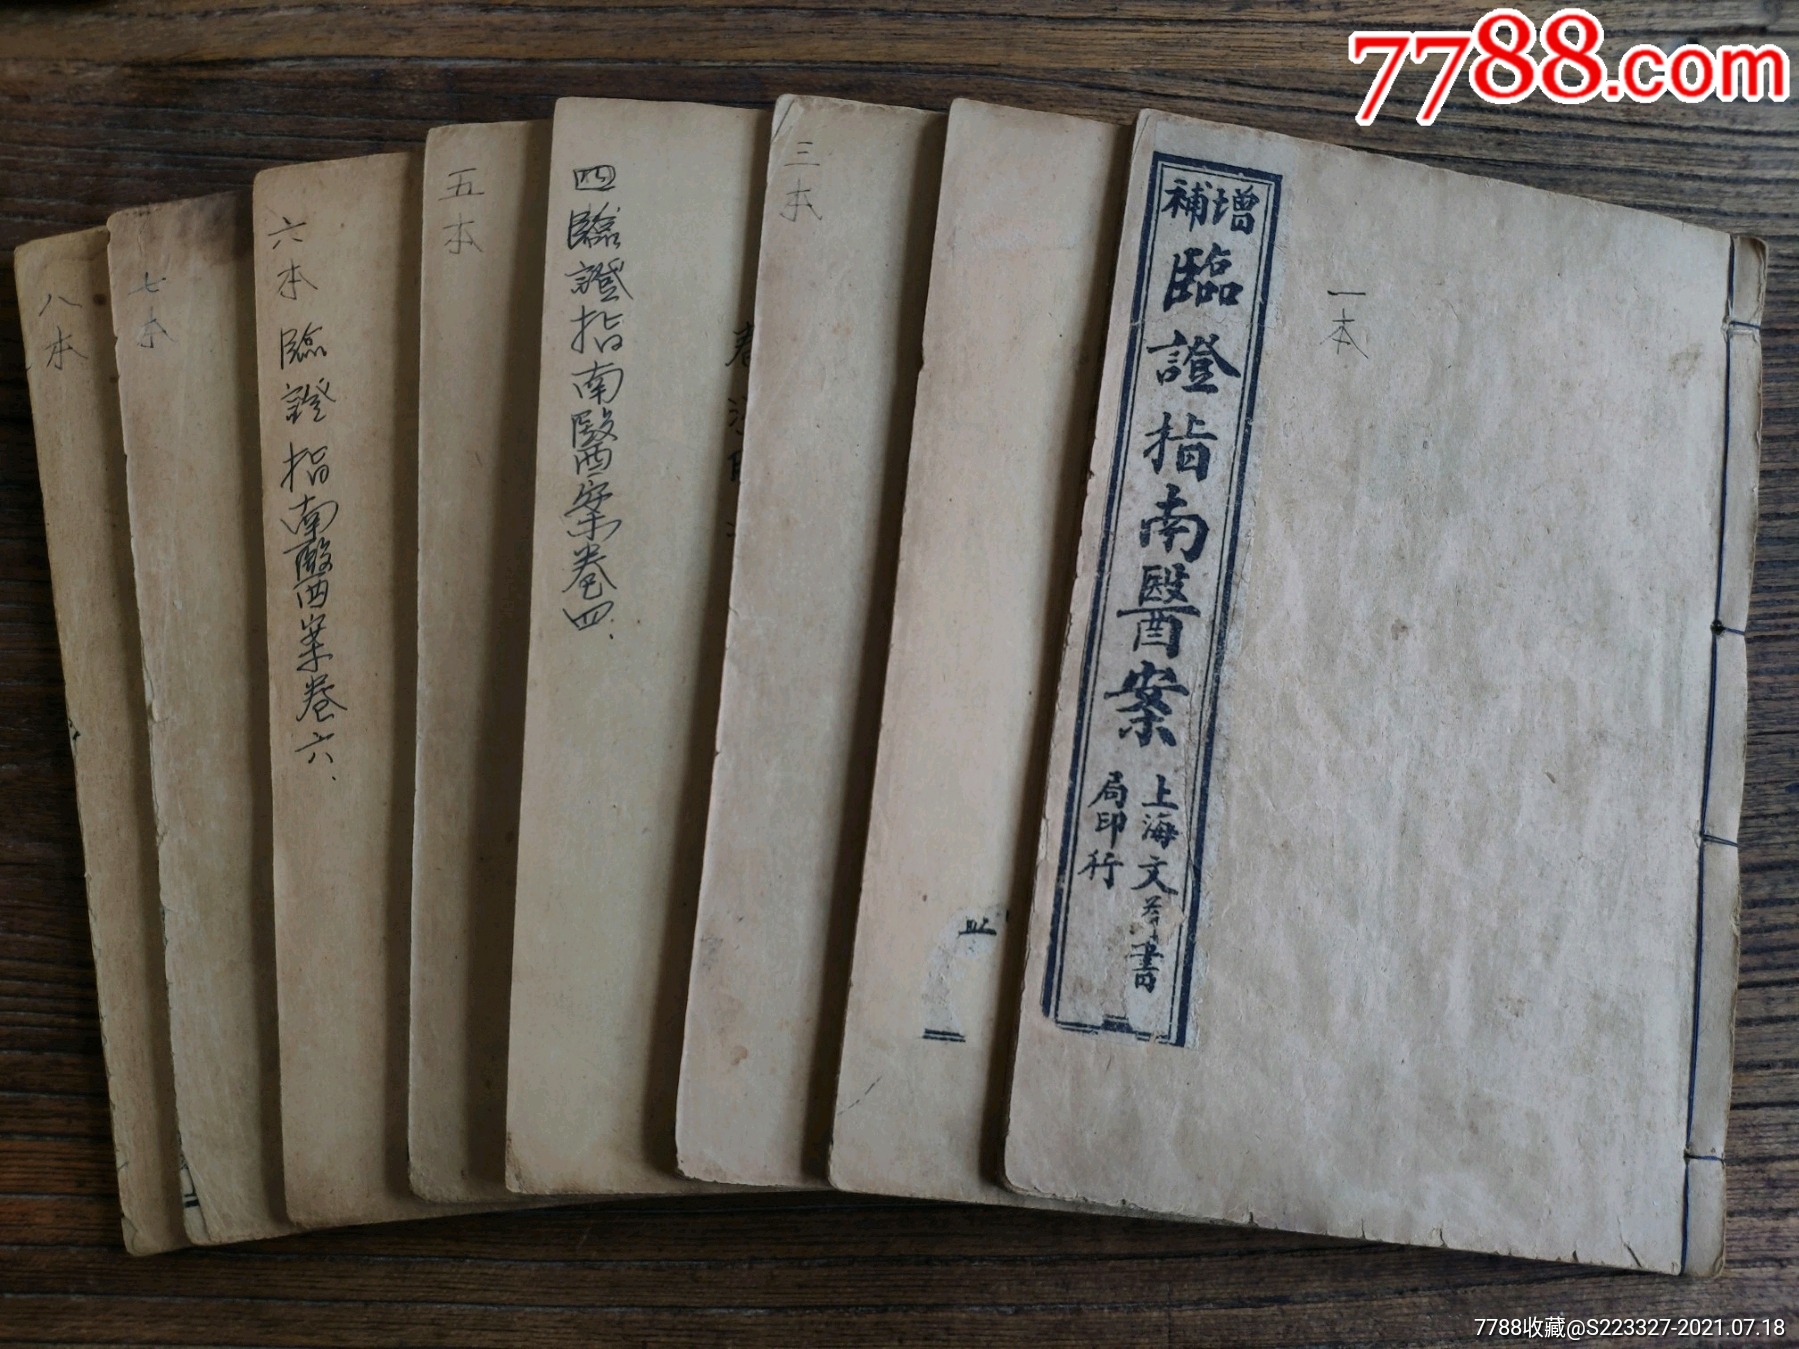 7788.com
增補
臨證指南醫案
上海文
書
局印行
一本
三本
四臨證指南醫案卷四.
五本
六本 臨證指南醫案卷六.
七本
八本
7788收藏@S223327-2021.07.18